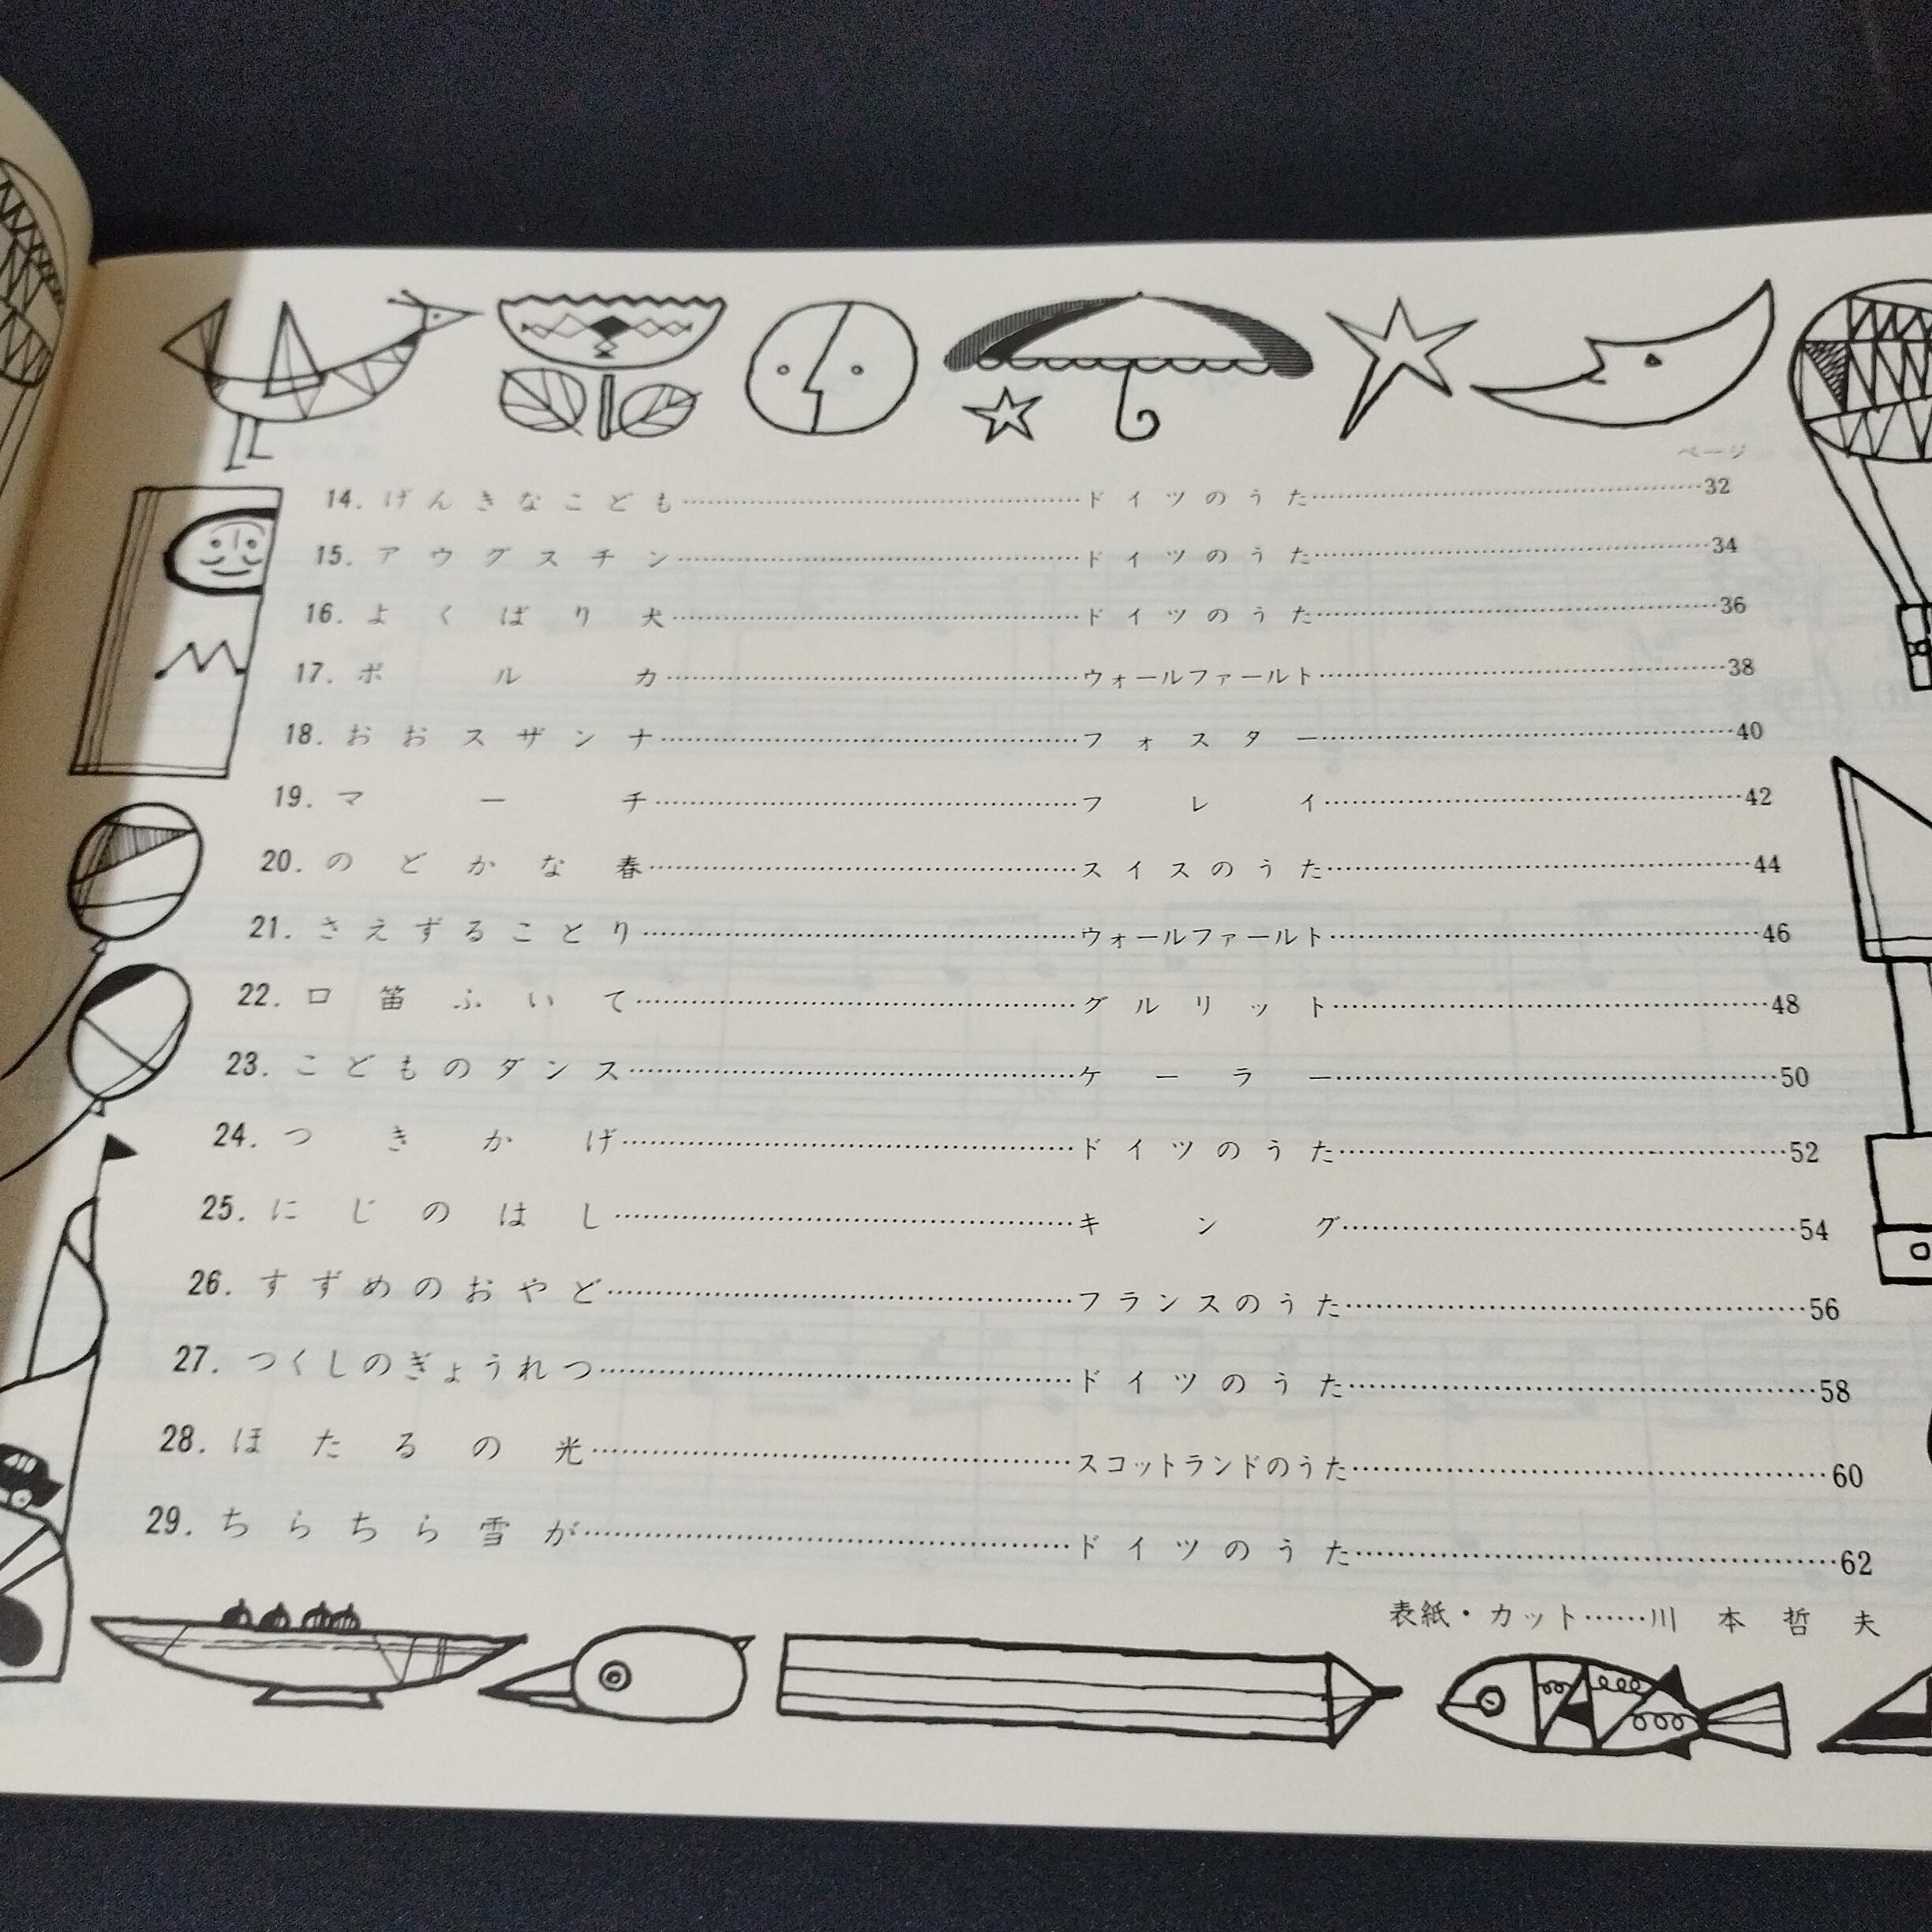 ページ
14. げんきなこども……ドイツのうた……32
15. アウグスチン……ドイツのうた……34
16. よくばり犬……ドイツのうた……36
17. ポルカ……ウォールファールト……38
18. おおスザンナ……フォスター……40
19. マーチ……フレイ……42
20. のどかな春……スイスのうた……44
21. さえずることり……ウォールファールト……46
22. 口笛ふいて……グルリット……48
23. こどものダンス……ケーラー……50
24. つきかげ……ドイツのうた……52
25. にじのはし……キング……54
26. すずめのおやど……フランスのうた……56
27. つくしのぎょうれつ……ドイツのうた……58
28. ほたるの光……スコットランドのうた……60
29. ちらちら雪が……ドイツのうた……62
表紙・カット……川本哲夫